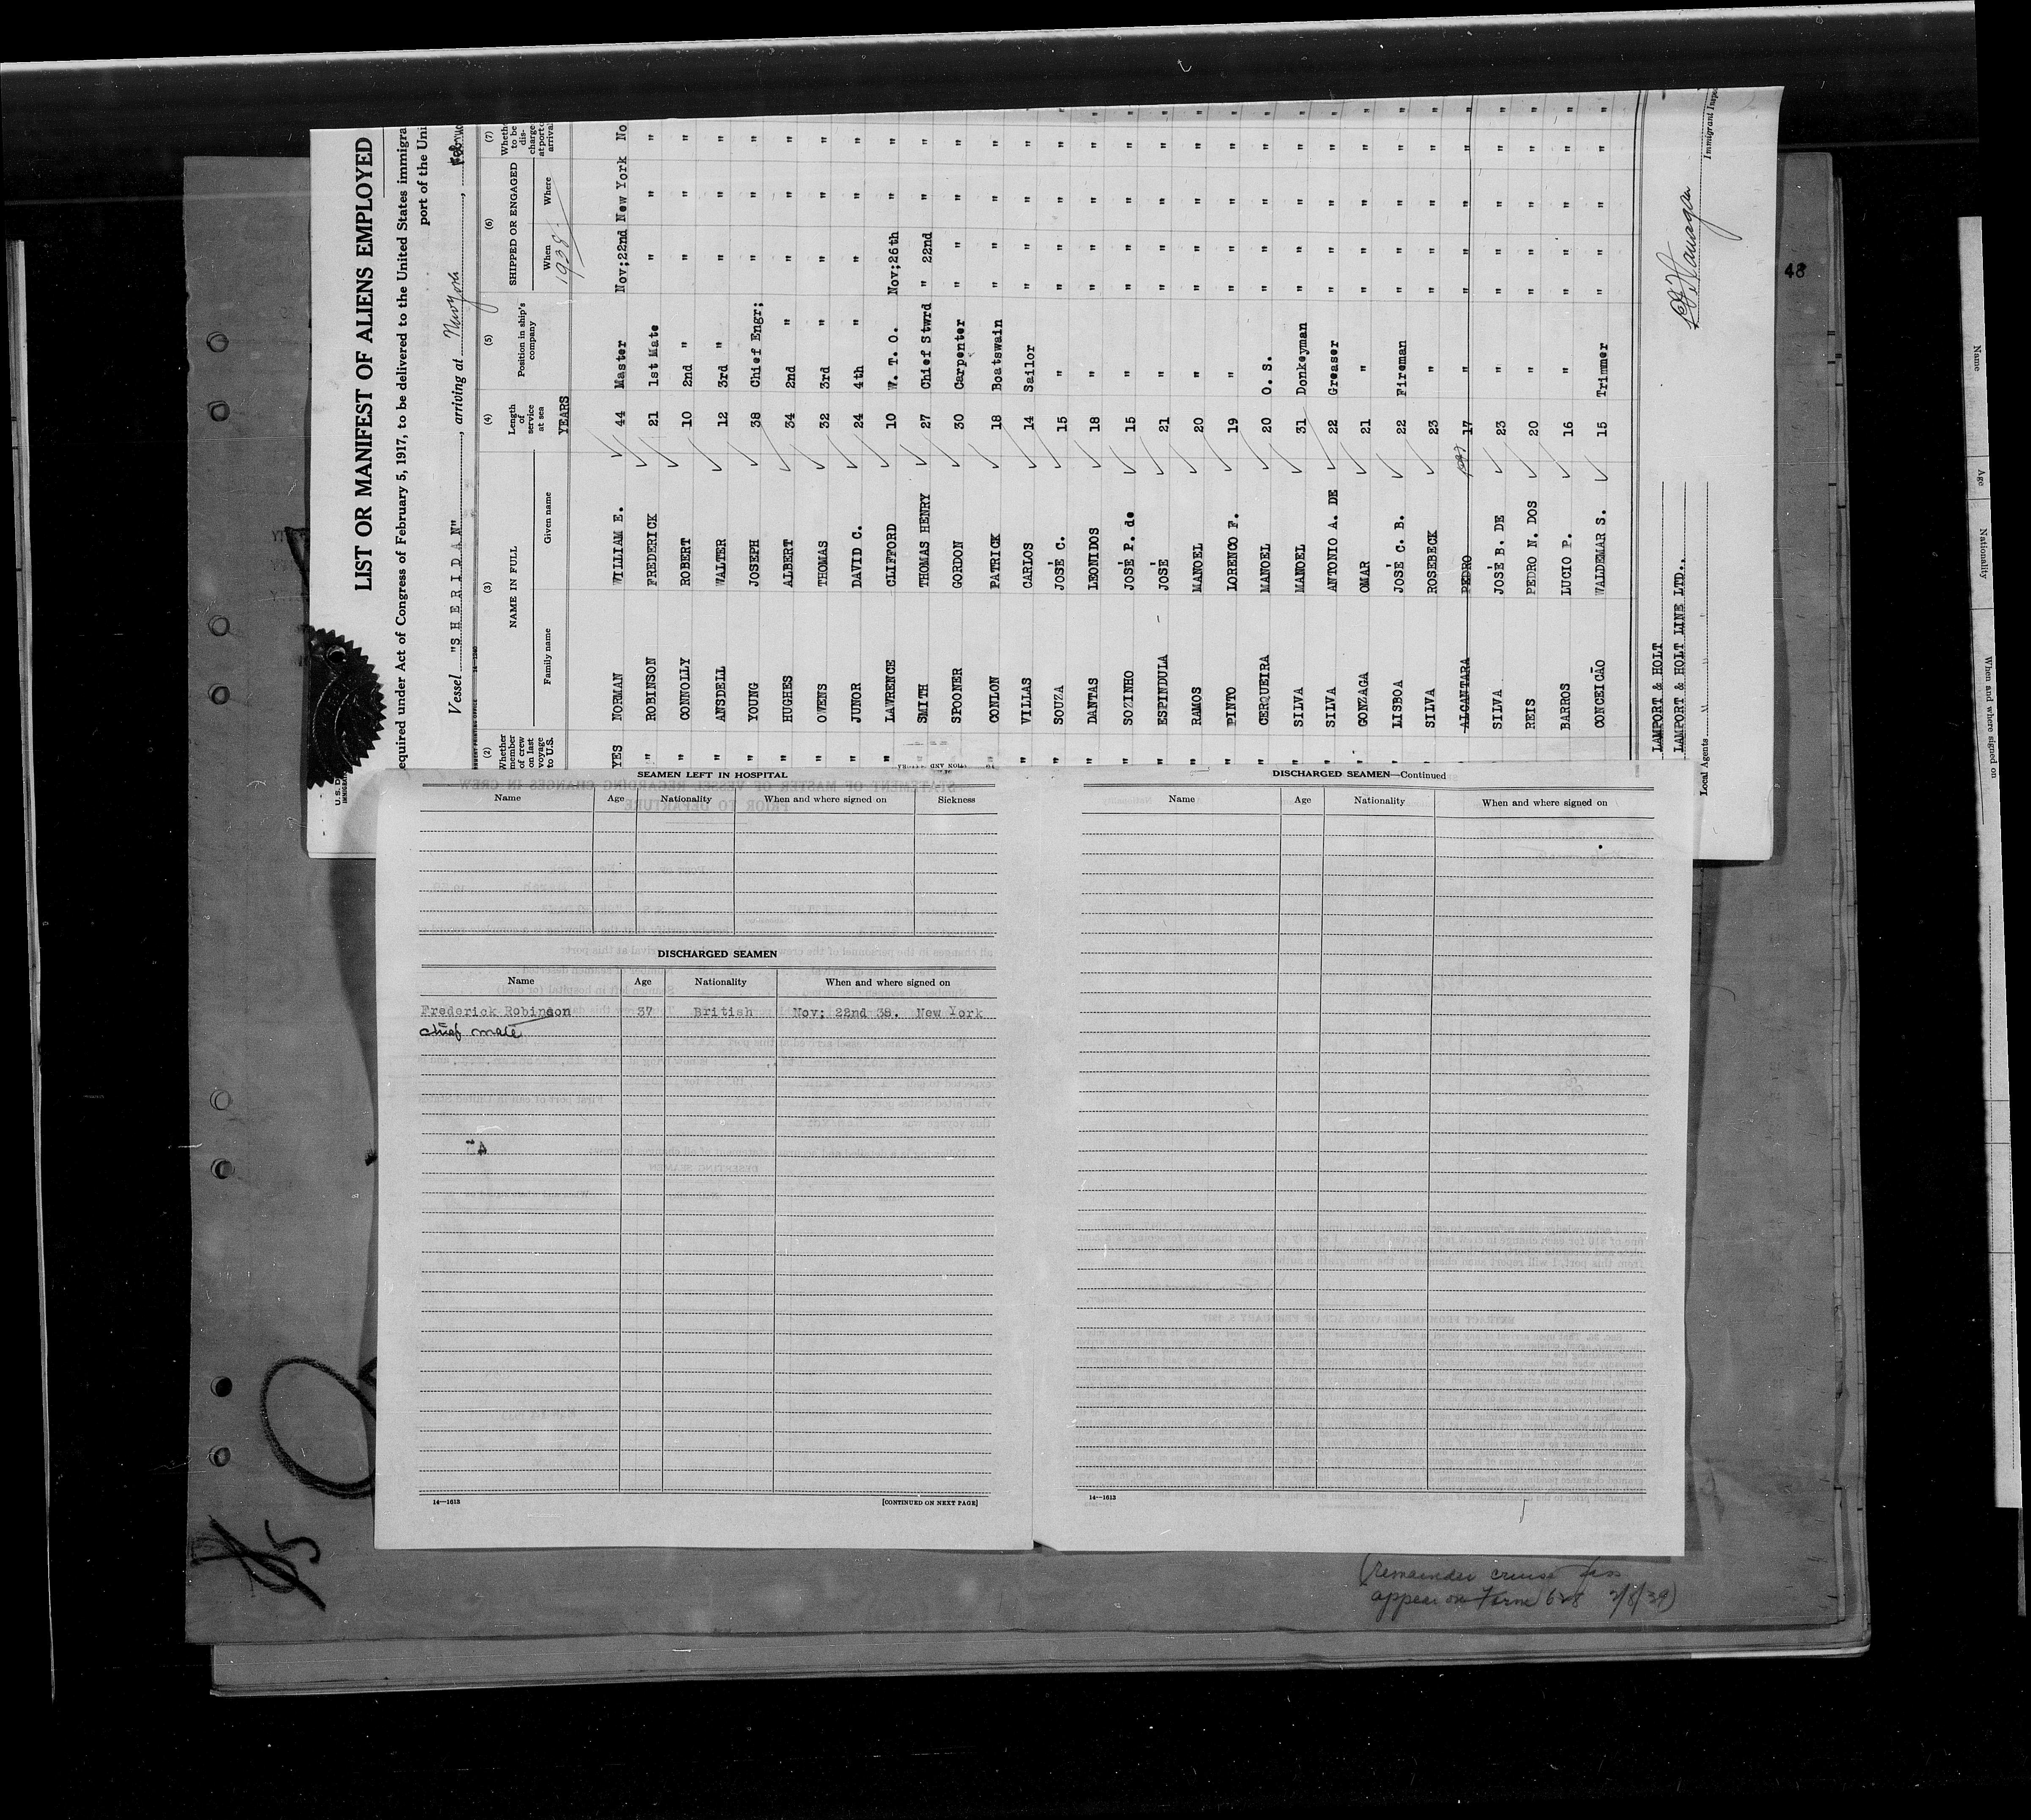 LIST OR MANIFEST OF ALIENS EMPLOYED
equired under Act of Congress of February 5, 1917, to be delivered to the United States immigra
port of the Uni
Vessel "SHERIDAN", arriving at New York,
(2) (3) (4) (5) (6) (7)
Whether member of crew on last voyage to U.S. NAME IN FULL Length of service at sea Position in ship's company SHIPPED OR ENGAGED Wheth to be dis- charge at port o arrival
Family name Given name YEARS When Where
1938
YES NORMAN WILLIAM E. 44 Master Nov;22nd New York No
" ROBINSON FREDERICK 21 1st Mate " " "
" CONNOLLY ROBERT 10 2nd " " " "
" ANSDELL WALTER 12 3rd " " " "
" YOUNG JOSEPH 38 Chief Engr; " " "
" HUGHES ALBERT 34 2nd " " " "
" OWENS THOMAS 32 3rd " " " "
" JUNOR DAVID C. 24 4th " " " "
" LAWRENCE CLIFFORD 10 W. T. O. Nov;26th " "
" SMITH THOMAS HENRY 27 Chief Stwrd " 22nd " "
SPOONER GORDON 30 Carpenter " " " "
CONLON PATRICK 18 Boatswain " " " "
" VILLAS CARLOS 14 Sailor " " " "
" SOUZA JOSÉ C. 15 " " " " "
" DANTAS LEONIDOS 18 " " " " "
" SOZINHO JOSÉ P. de 15 " " " " "
" ESPINDULA JOSÉ 21 " " " " "
" RAMOS MANOEL 20 " " " " "
" PINTO LORENCO F. 19 " " " " "
" CERQUEIRA MANOEL 20 O. S. " " " "
" SILVA MANOEL 31 Donkeyman " " " "
" SILVA ANTONIO A. DE 22 Greaser " " " "
" GONZAGA OMAR 21 " " " " "
" LISBOA JOSÉ C. B. 22 Fireman " " " "
" SILVA ROSEBECK 23 " " " " "
" ALCANTARA PEDRO 17 " " " " "
" SILVA JOSÉ B. DE 23 " " " " "
" REIS PEDRO N. DOS 20 " " " " "
" BARROS LUCIO P. 16 " " " " "
" CONCEIÇÃO WALDEMAR S. 15 Trimmer " " " "
LAMPORT & HOLT
LAMPORT & HOLT LINE LTD.,
Local Agents
Immigrant Inspe
48
SEAMEN LEFT IN HOSPITAL
Name Age Nationality When and where signed on Sickness
DISCHARGED SEAMEN
Name Age Nationality When and where signed on
Frederick Robinson 37 British Nov; 22nd 38. New York
chief mate
14—1613 [CONTINUED ON NEXT PAGE]
DISCHARGED SEAMEN—Continued
Name Age Nationality When and where signed on
14—1613
85
(remainder crew
appear on Form 628 2/8/39)
Name Age Nationality When and where signed on